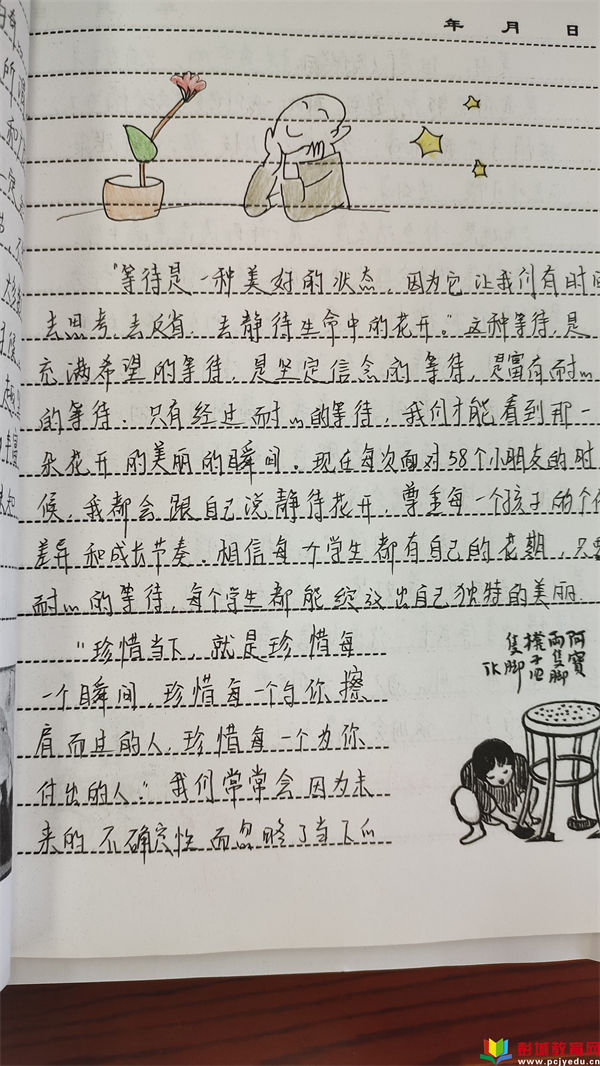 年 月 日
"等待是一种美好的状态,因为它让我们有时间
去思考,去反省,去静待生命中的花开。"这种等待,是
充满希望的等待,是坚定信念的等待,是富有耐心
的等待。只有经过耐心的等待,我们才能看到那一
朵花开的美丽的瞬间。现在每次面对58个小朋友的时
候,我都会跟自己说静待花开,尊重每一个孩子的个体
差异和成长节奏。相信每个学生都有自己的花期,只要
耐心的等待,每个学生都能绽放出自己独特的美丽.
"珍惜当下,就是珍惜每
一个瞬间,珍惜每一个与你擦
肩而过的人,珍惜每一个为你
付出的人。"我们常常会因为未
来的不确定性而忽略了当下的
阿寶
兩隻腳
櫈子四
隻腳
彭城教育网
www.pcjyedu.cn